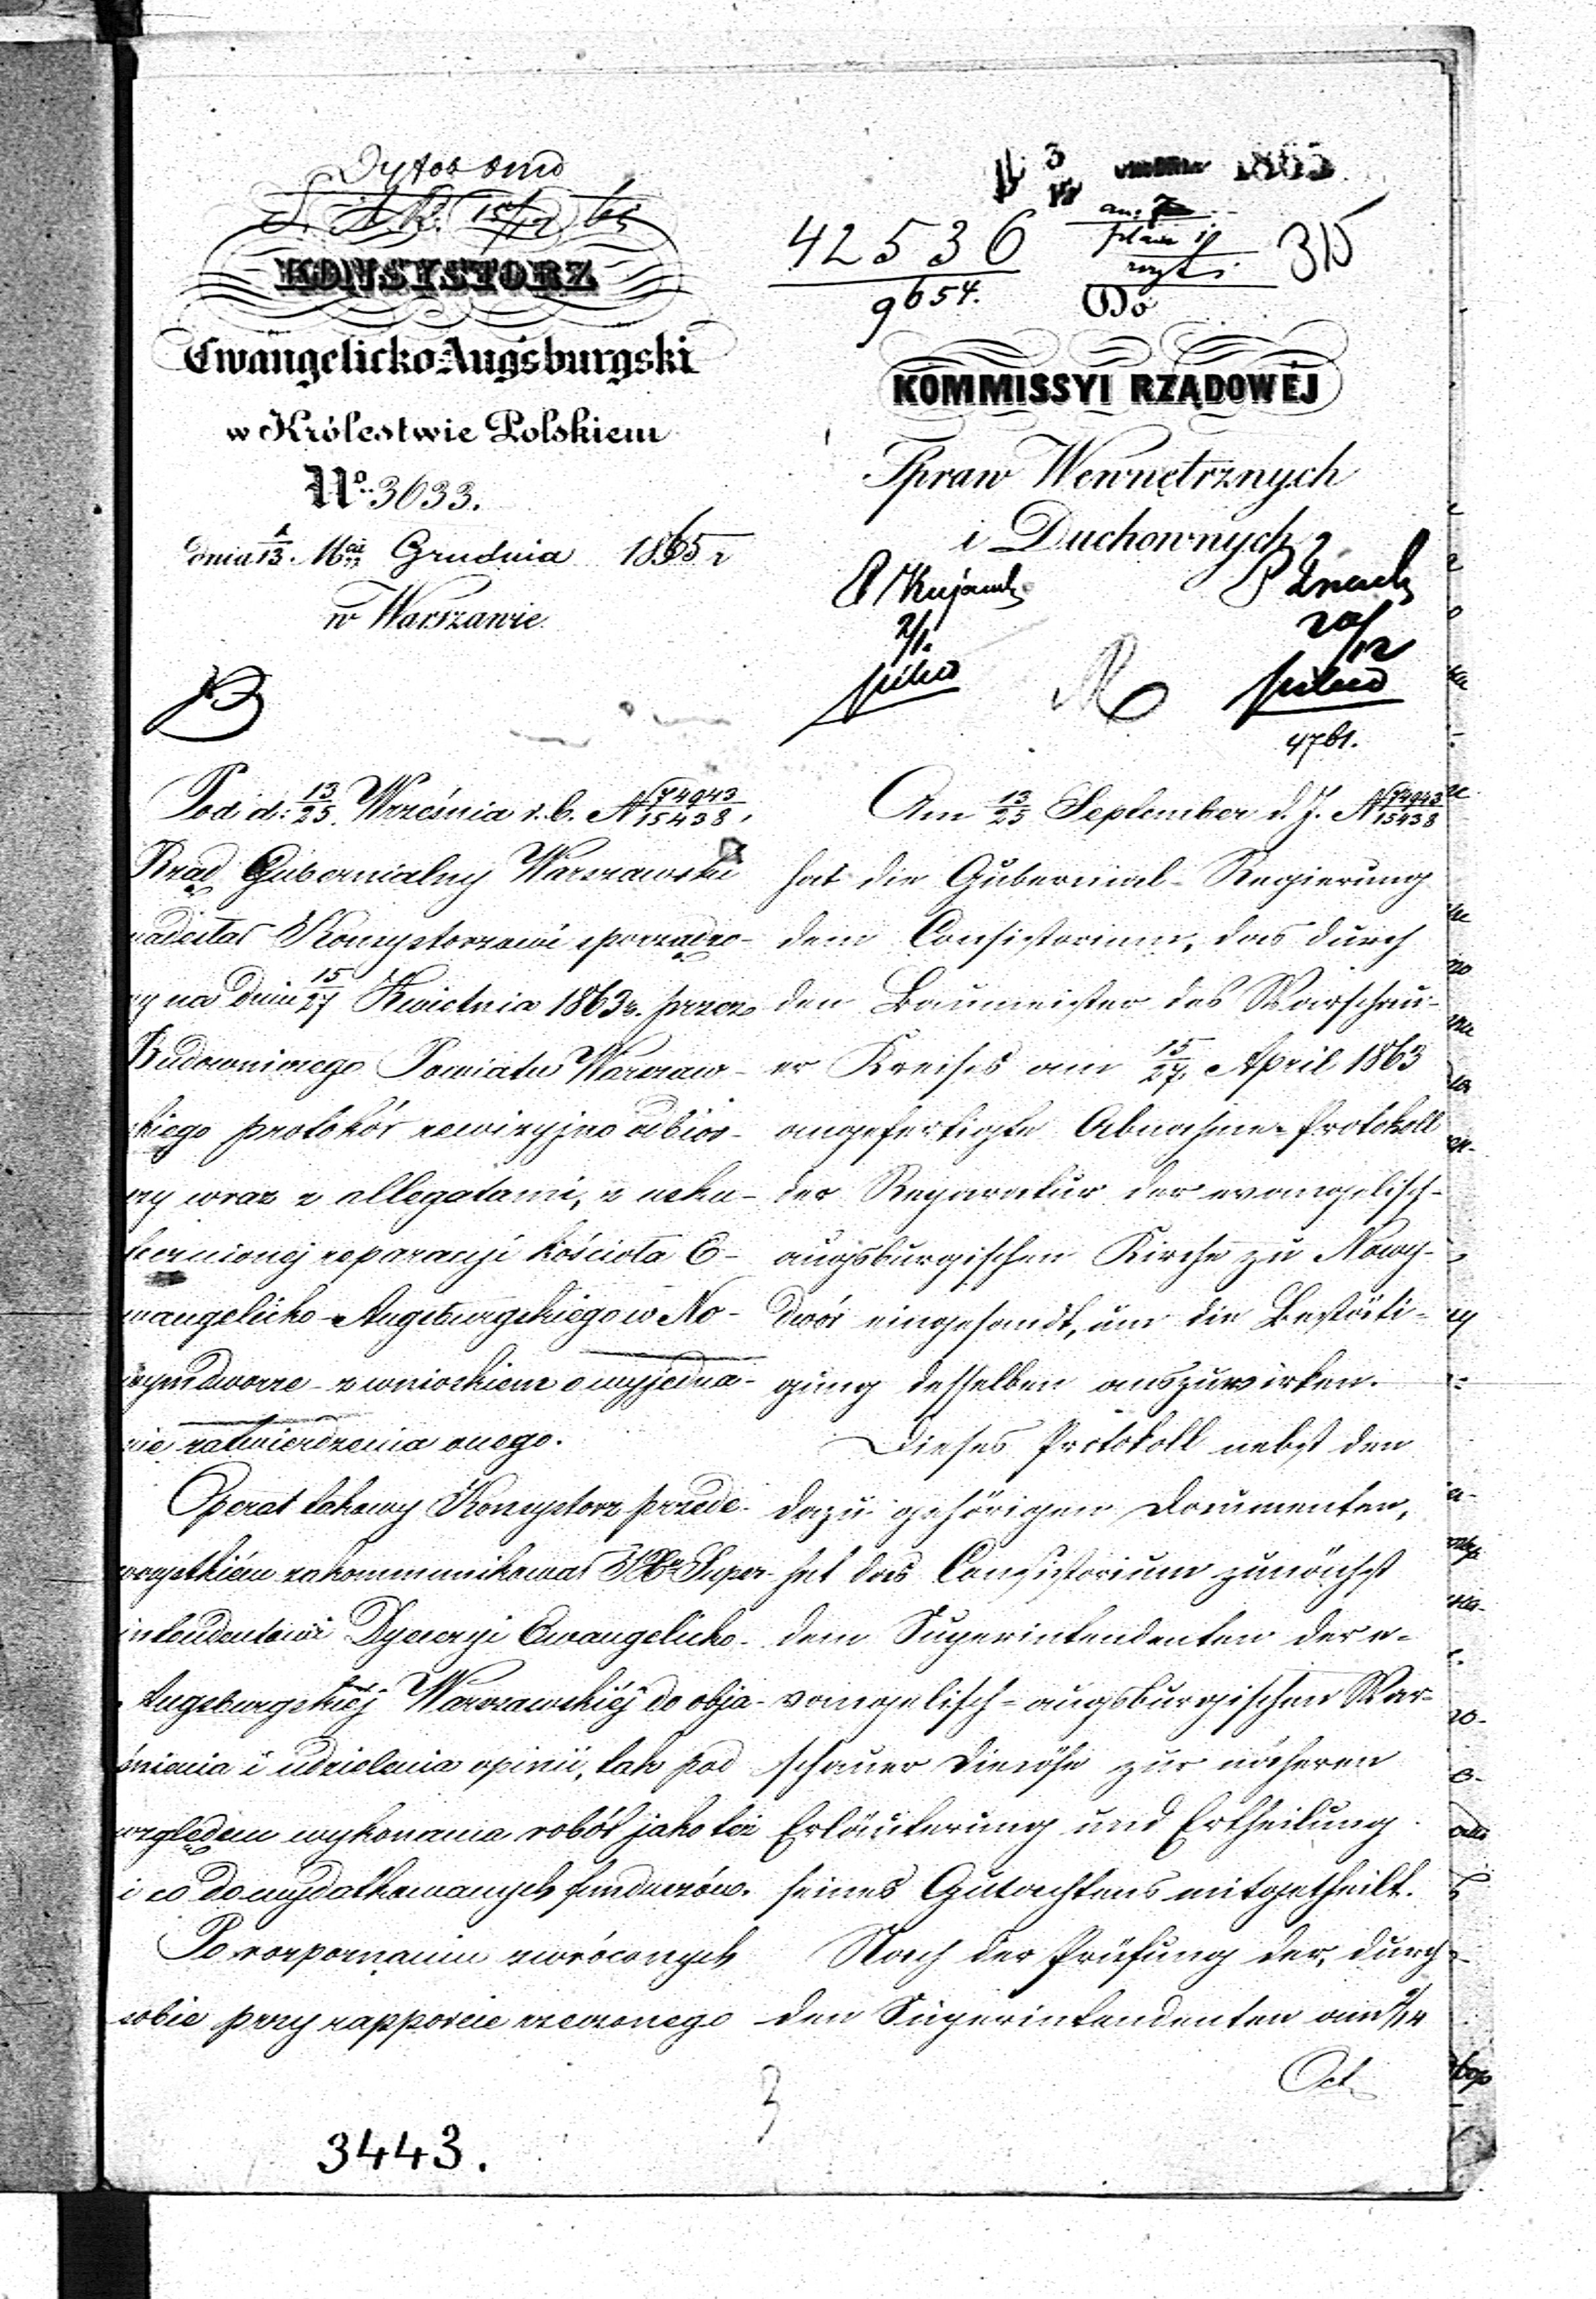 KONSYSTORZ
Ewangelicko-Augsburgski
w Królestwie Polskiem
No. 3633.
dnia 1/13 Mca Grudnia 1865 r
w Warszawie.
1865
42536
9654.
315
Do
KOMMISSYI RZĄDOWÉJ
Spraw Wewnętrznych
i Duchownych
20/12
4761.
Pod d: 13/25. Września r. b. N 74943/15438,
Rząd Gubernialny Warszawski
nadesłał Konsystorzowi sporządzo-
ny na dniu 15/27 Kwietnia 1863 r. przez
Budowniczego Powiatu Warszaw-
skiego protokół rewizyjno odbior-
czy wraz z allegatami, z usku-
tecznionej reparacyi kościoła E-
wangelicko-Augsburgskiego w No-
wymdworze z wnioskiem o wyjedna-
nie zatwierdzenia onego.
Operat takowy Konsystorz przede-
wszystkiém zakommunikował Super-
intendentowi Dyecezyi Ewangelicko-
Augsburgskiéj Warszawskiéj do obja-
śnienia i udzielenia opinii, tak pod
względem wykonania robót jako też
i co do wydatkowanych funduszów.
Po rozpoznaniu zwróconych
sobie przy rapporcie rzeczonego
Am 13/25 September d. J. N 74943/15438
hat die Gubernial-Regierung
dem Consistorium, das durch
den Baumeister des Warschau-
er Kreises am 15/27. April 1863
angefertigte Abnahme-Protokoll
der Reparatur der evangelisch-
augsburgischen Kirche zu Nowy-
dwór eingesandt, um die Bestäti-
gung desselben auszuwirken.
Dieses Protokoll nebst den
dazu gehörigen Documenten,
hat das Consistorium zunächst
dem Superintendenten der e-
vangelisch-augsburgischen War-
schauer Diecöse zur näheren
Erläuterung und Ertheilung
seines Gutachtens mitgetheilt.
Nach der Prüfung der, durch
den Superintendenten am 2/14
Oct.
3443.